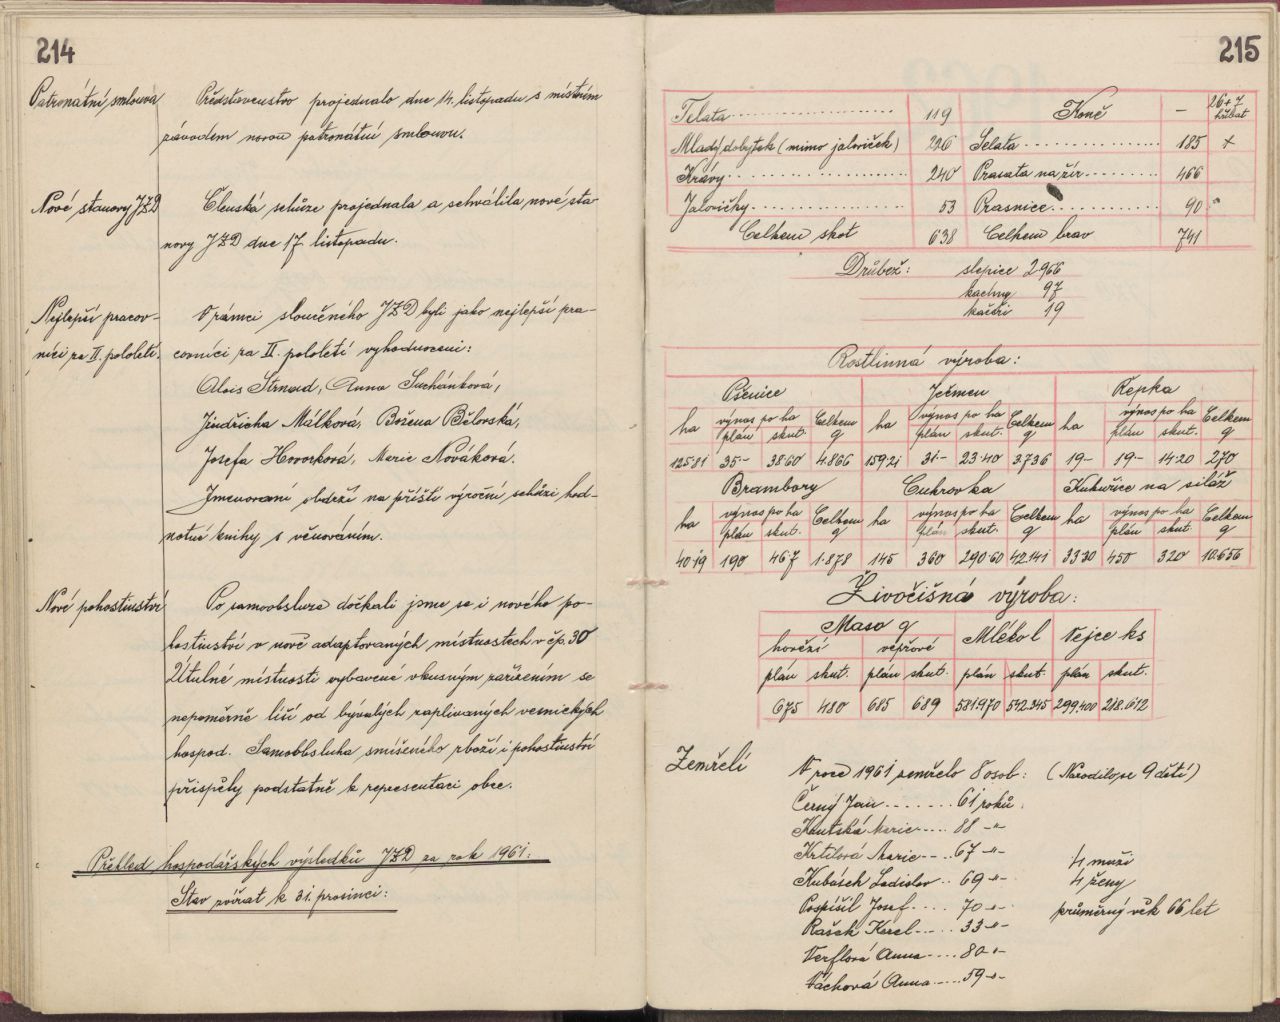 214
Patronátní smlouva
Představenstvo projednalo dne 14. listopadu s místním
závodem novou patronátní smlouvu.
Nové stanovy JZD
Členská schůze projednala a schválila nové sta-
novy JZD dne 17. listopadu.
Nejlepší pracov-
níci za II. pololetí.
V rámci sloučeného JZD byli jako nejlepší pra-
covníci za II. pololetí vyhodnoceni:
Alois Strnad, Anna Suchánková,
Jindřicha Málková, Božena Bělovská,
Josefa Hovorková, Marie Nováková.
Jmenovaní obdrží na příští výroční schůzi hod-
notné knihy s věnováním.
Nové pohostinství
Po samoobsluze dočkali jsme se i nového po-
hostinství v nově adaptovaných místnostech v čp. 30
Útulné místnosti vybavené vkusným zařízením se
nepoměrně liší od bývalých zaplivaných vesnických
hospod. Samoobsluha smíšeného zboží i pohostinství
přispěly podstatně k representaci obce.
Přehled hospodářských výsledků JZD za rok 1961:
Stav zvířat k 31. prosinci:
215
Telata 119 Koně — 26+7 hříbat
Mladý dobytek (mimo jaloviček) 226 Selata 185 +
Krávy 240 Prasata na žír 466
Jalovičky 53 Prasnice 90
Celkem skot 638 Celkem brav 741
Drůbež: slepice 2966
kachny 97
kačeři 19
Rostlinná výroba:
Pšenice Ječmen Řepka
ha výnos po ha Celkem ha výnos po ha Celkem ha výnos po ha Celkem
plán skut. q plán skut. q plán skut. q
125·81 35·— 38·60 4.866 159·21 31·— 23·40 3736 19— 19·— 14·20 270
Brambory Cukrovka Kukuřice na siláž
ha výnos po ha Celkem ha výnos po ha Celkem ha výnos po ha Celkem
plán skut. q plán skut. q plán skut. q
40·19 190 46·7 1.878 145 360 290·60 42.141 33·30 450 320 10.656
Živočišná výroba:
Maso q Mléko l Vejce ks
hovězí vepřové
plán skut. plán skut. plán skut. plán skut.
675 480 685 689 581970 542.345 299.400 218.612
Zemřelí
V roce 1961 zemřelo 8 osob: (Narodilo se 9 dětí)
Černý Jan 61 roků.
Knutská Marie 88 -"-
Krtilová Marie 67 -"-
4 muži
Kubásek Ladislav 69 -"-
4 ženy
Pospíšil Josef 70 -"-
průměrný věk 66 let
Rašek Karel 33 -"-
Verflová Anna 80 -"-
Váchová Anna 59 -"-